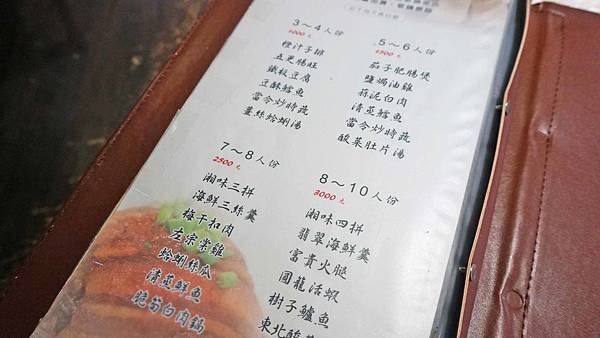 3～4人份
1000元
橙汁子排
五更腸旺
鐵板豆腐
豆酥鱈魚
當令炒時蔬
薑絲蛤蜊湯
5～6人份
1500元
茄子肥腸煲
鹽焗油雞
蒜泥白肉
清蒸鱈魚
當令炒時蔬
酸菜肚片湯
7～8人份
2500元
湘味三拼
海鮮三絲羹
梅干扣肉
左宗棠雞
蛤蜊絲瓜
清蒸鮮魚
脆筍白肉鍋
8～10人份
3000元
湘味四拼
翡翠海鮮羹
富貴火腿
圓龍活蝦
樹子鱸魚
東北酸